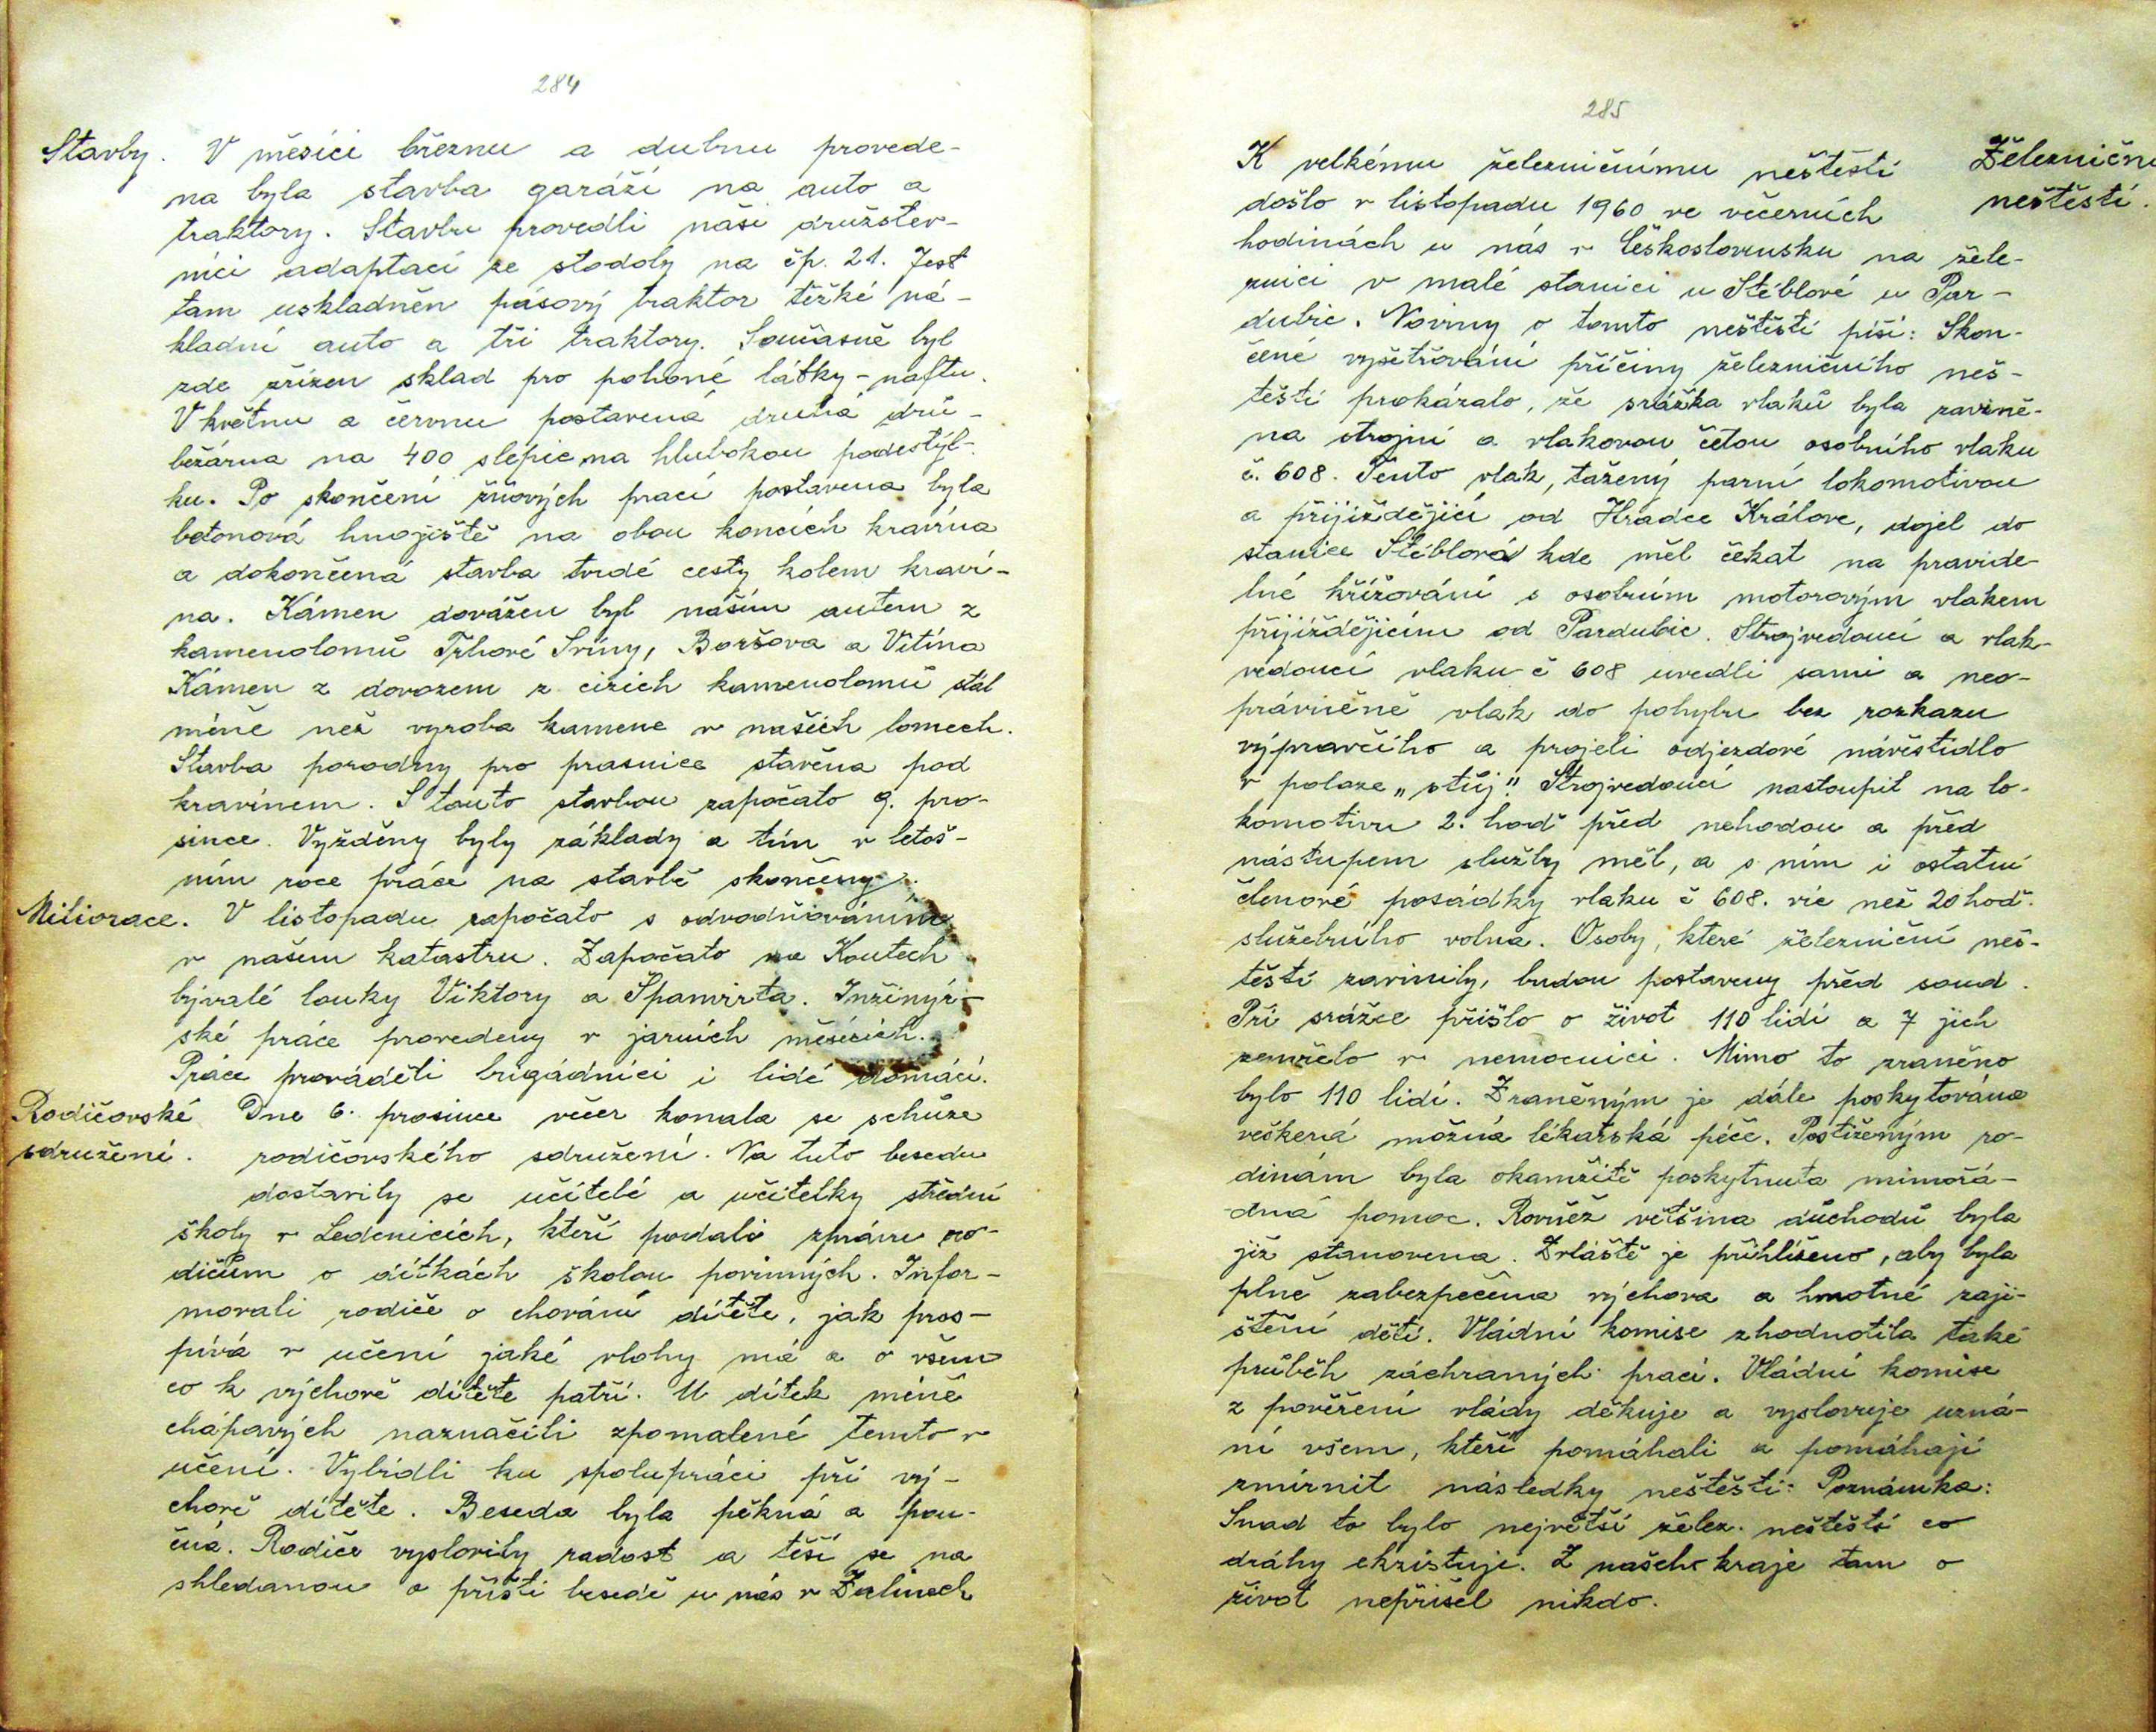 284
Stavby. V měsíci březnu a dubnu provede-
na byla stavba garáží na auto a
traktory. Stavbu provedli naši družstev-
níci adaptací ze stodoly na čp. 21. Jest
tam uskladněn pásový traktor těžké ná-
kladní auto a tři traktory. Současně byl
zde zřízen sklad pro pohoné látky - naftu.
V květnu a červnu postavená druhá drů-
bežárna na 400 slepic na hlubokou podestýl-
ku. Po skončení žňových prací postavena byla
betonová hnojiště na obou koncích kravína
a dokončená stavba tvrdé cesty kolem kraví-
na. Kámen dovážen byl naším autem z
kamenolomů Trhové Sviny, Boršova a Vitína
Kámen z dovozem z cizích kamenolomů stál
méně než vyroba kamene v našich lomech.
Stavba porodny pro prasnice stavěna pod
kravínem. S touto stavbou započato 9. pro-
since. Vyžděny byly základy a tím v letoš-
ním roce práce na stavbě skončeny.
Miliorace. V listopadu započato s odvodňováním
v našem katastru. Započato na Koutech
bývalé louky Viktory a Španvirta. Inžinýr-
ské práce provedeny v jarních měsících.
Práce prováděli brigádníci i lidé domácí.
Rodičovské Dne 6. prosince večer konala se schůze
sdružení. rodičovského sdružení. Na tuto besedu
dostavily se učitelé a učitelky střední
školy v Ledenicích, kteří podali zprávu ro-
dičům o dítkách školou povinných. Infor-
movali rodiče o chování dítěte, jak pros-
pívá v učení jaké vlohy má a o všem
co k výchově dítěte patří. U dítek méně
chápavých naznačili zpomalené temto v
učení. Vybídli ku spolupráci při vý-
chově dítěte. Beseda byla pěkná a pou-
čná. Rodiče vyslovily radost a těší se na
shledanou o příšti besedě u nás v Zalinech
285
K velkému železničnímu neštěstí Železniční
došlo v listopadu 1960 ve večerních neštěstí.
hodinách u nás v Československu na žele-
znici v malé stanici u Stéblové u Par-
dubic. Noviny o tomto neštěstí píší: Skon-
čené vyšetřování příčiny železničního neš-
těstí prokázalo, že srážka vlaků byla zavině-
na strojní a vlakovou četou osobního vlaku
č. 608. Tento vlak, tažený parní lokomotivou
a přijíždějící od Hradce Králove, dojel do
stanice Stéblová kde měl čekat na pravide
lné křížování s osobním motorovým vlakem
přijíždějícím od Pardubic. Strojvedoucí a vlak-
vedoucí vlaku č 608 uvedli sami a neo-
právněně vlak do pohybu bez rozkazu
výpravčího a projeli odjezdové návěstidlo
v poloze „stůj". Strojvedoucí nastoupil na lo-
komotivu 2. hod před nehodou a před
nástupem služby měl, a s ním i ostatní
členové posádky vlaku č 608. víc než 20 hod.
služebního volna. Osoby, které železniční neš-
těstí zavinily, budou postaveny před soud.
Při srážce přišlo o život 110 lidí a 7 jich
zemřelo v nemocnici. Mimo to zraněno
bylo 110 lidí. Zraněným je dále poskytována
veškerá možná lékařská péče. Postiženým ro-
dinám byla okamžitě poskytnuta mimořá-
dná pomoc. Rovněž většina důchodů byla
již stanovena. Zvláště je přihlíženo, aby byla
plně zabezpečena výchova a hmotné zaji-
štění dětí. Vládní komise zhodnotila také
průběh záchraných prací. Vládní komise
z pověření vlády děkuje a vyslovuje uzná-
ní všem, kteří pomáhali a pomáhají
zmírnit následky neštěstí. Poznámka:
Snad to bylo největší želez. neštěstí co
dráhy ekzistuje. Z našeho kraje tam o
život nepřišel nikdo.